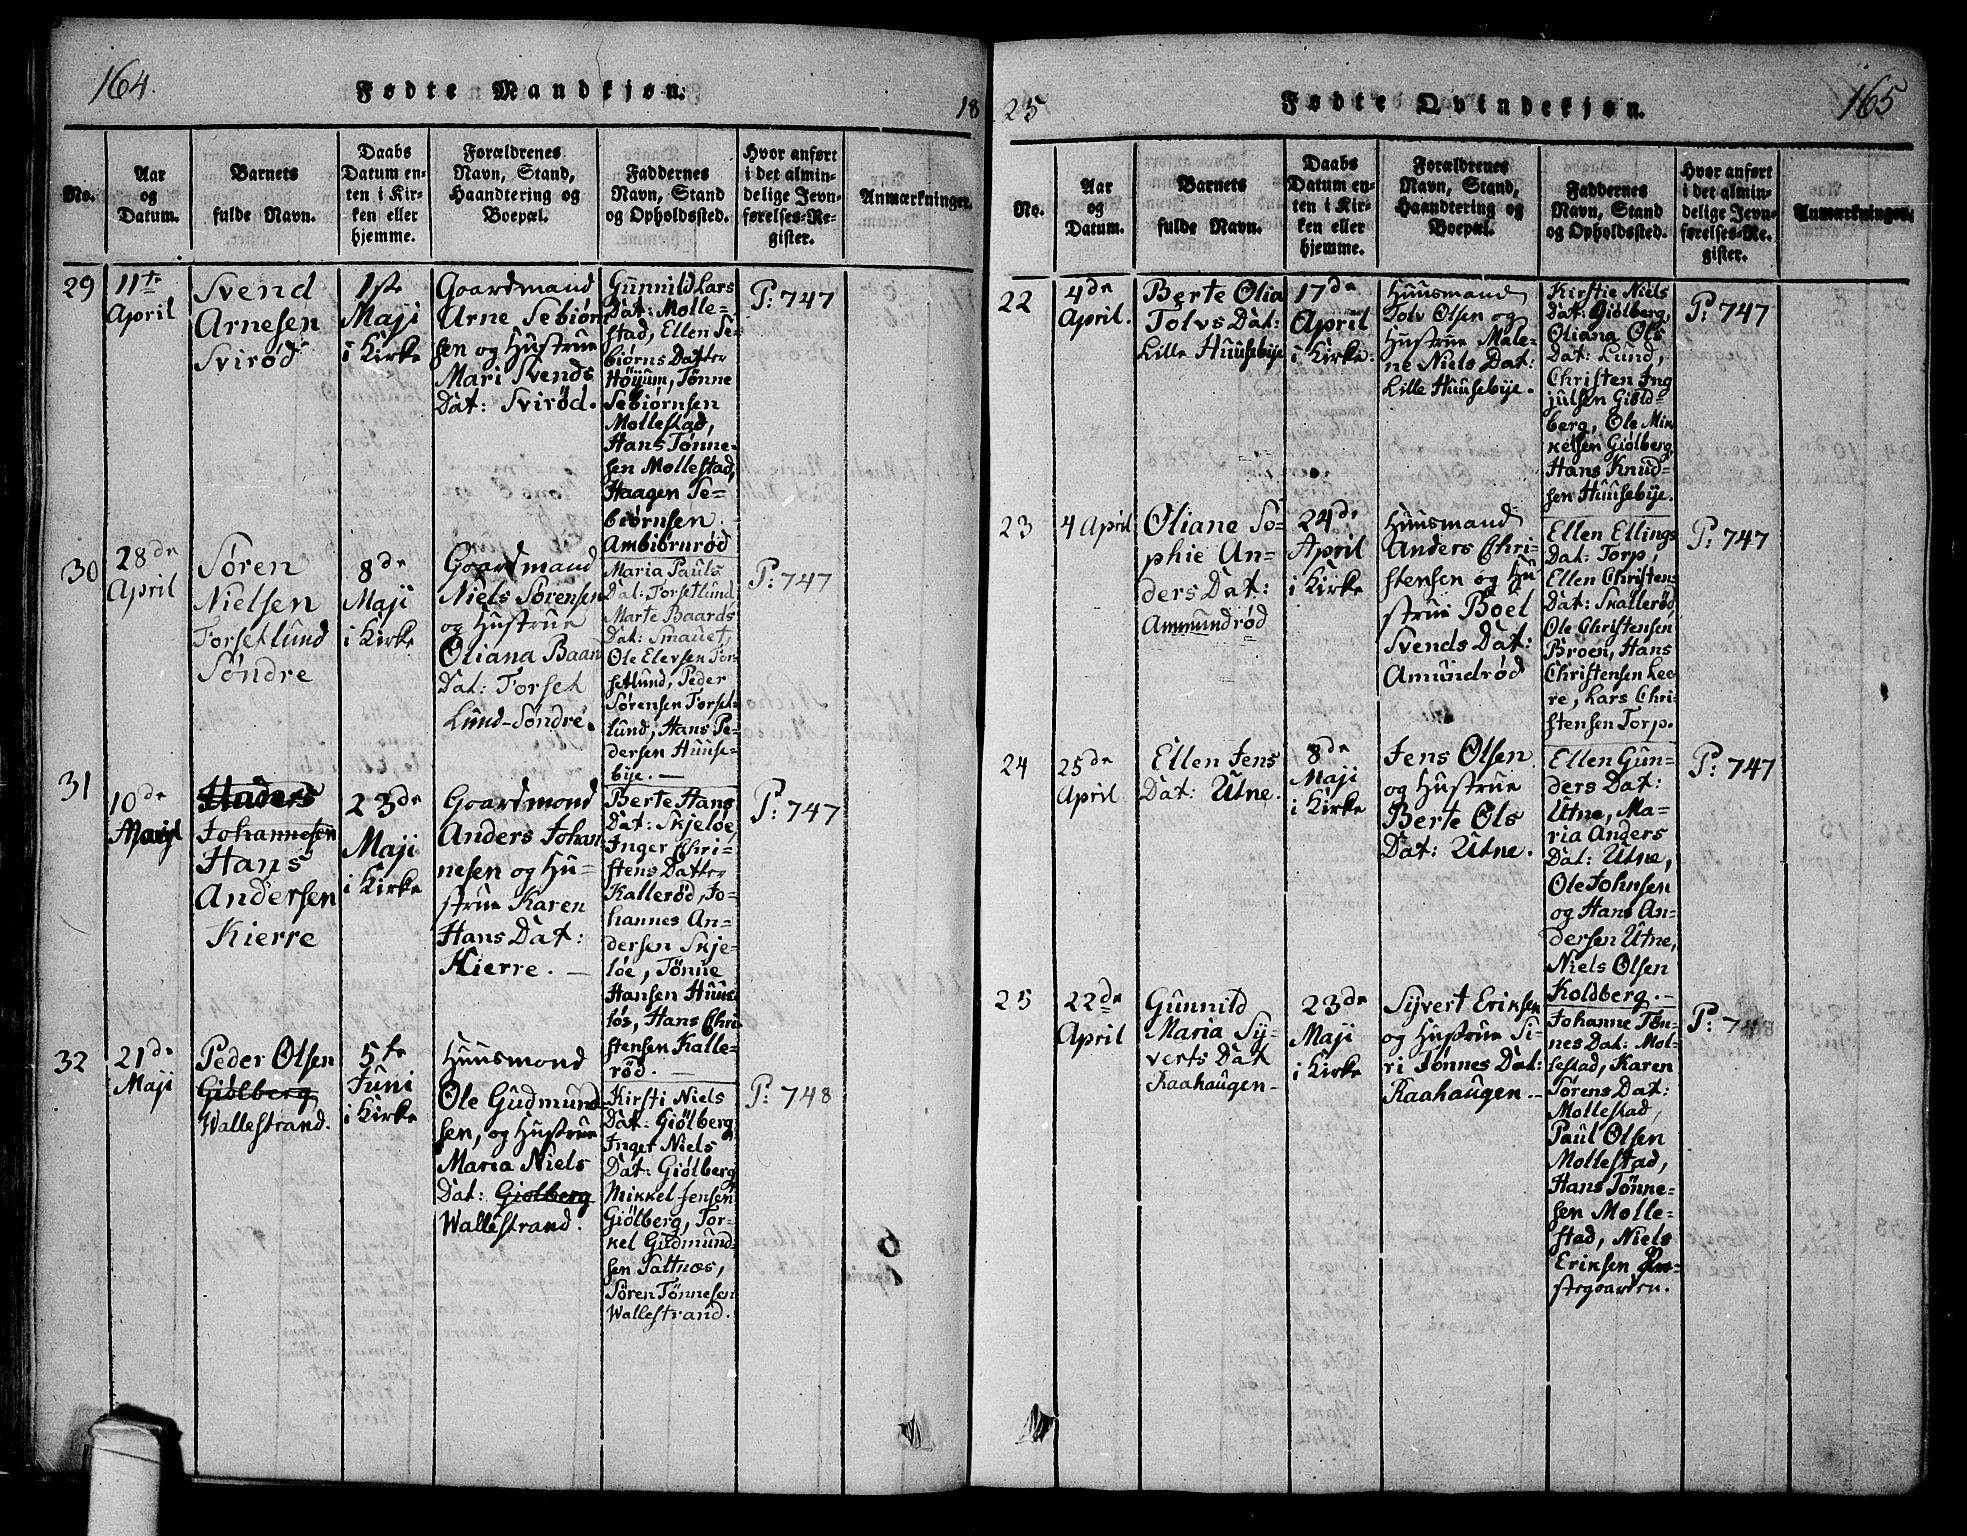 164.
Fødte Mandkjøn.
18
No.
Aar
og
Datum.
Barnets
fulde Navn.
Daabs
Datum en-
ten i Kir-
ken eller
hjemme.
Forældrenes
Navn, Stand,
Haandtering og
Boepæl.
Faddernes
Navn, Stand
og Opholdssted.
Hvor anført
i det almin-
delige Jevn-
førelses-Re-
gister.
Anmærkninger.
29
11te
April
Svend
Arnesen
Svirød
1ste
Maji
i Kirke
Goardmand
Arne Sebiørn
sen og Hustrue
Mari Svends
Dat: Svirød.
Gunnild Lars
Dat: Molle-
stad, Ellen Se-
biørns Datter
Höyum, Tønne
Sebiørnsen
Mollestad,
Hans Tønne-
sen Mollestad,
Haagen Se-
biørnsen
Ambiørnrød
P: 747
30
28de
April
Søren
Nielsen
Torsetlund
Søndre
8de
Maji
i Kirke
Goardmand
Niels Sørensen
og Hustrue
Oliana Baar
Dat: Torset
Lund-Søndre.
Maria Pauls
Dat: Torsetlund
Marte Baards
Dat: Smauet,
Ole Elevsen Tor-
setlund, Peder
Sørensen Torset
lund, Hans Pe-
dersen Huuse-
bye. —
P: 747
31
10de
Maji
Anders
Johannesen
Hans
Andersen
Kierre
23de
Maji
i Kirke
Goardmond
Anders Johan
nesen og Hu-
strue Karen
Hans Dat:
Kierre. —
Berte Hans
Dat: Skjeløe,
Inger Chri-
stens Datter
Kallerød, Jo-
hannes An-
dersen Skje-
løe, Tønne
Hansen Huus
løs, Hans Chri
stensen Kalle-
rød. —
P: 747
32
21de
Maji
Peder Olsen
Giølberg
Wallestrand.
5te
Juni
i Kirke
Huusmond
Ole Gudmund-
sen, og Hustrue
Maria Niels
Dat: Giølberg
Wallestrand.
Kirsti Niels
Dat: Giølberg
Inger Niels
Dat: Giølberg
Mikkel Jensen
Giølberg, Tor-
kel Gudmund-
sen Saltnæs,
Søren Tønnesen
Wallestrand.
P: 748
25
Fødte Qvindekjøn.
165
No.
Aar
og
Datum.
Barnets
fulde Navn.
Daabs
Datum en-
ten i Kir-
ken eller
hjemme.
Forældrenes
Navn, Stand,
Haandtering og
Boepæl.
Faddernes
Navn, Stand
og Opholdssted.
Hvor anført
i det almin-
delige Jevn-
førelses-Re-
gister.
Anmærkninger.
22
4de
April.
Berte Olia
Tolvs Dat:
Lille Huusebye
17de
April
i Kirke.
Huusmand
Tolv Olsen og
Hustrue Male-
ne Niels Dat:
Lille Huusebye.
Kirstie Niels
Dat: Giølberg,
Oliana Ols
Dat: Lund,
Christen Ing
julsen Giøld-
berg, Ole Mik
kelsen Giølberg,
Hans Knud-
sen Huusebye.
P: 747
23
4 April
Oliane So-
phie An-
ders Dat:
Ammundrød
24de
April
i Kirke
Huusmand
Anders Chri-
stensen og Hu
strue Boel
Svends Dat:
Amundrød
Ellen Ellings
Dat: Torp,
Ellen Christen-
Dat: Skallerød,
Ole Christensen
Broen, Hans
Christensen Lee-
re, Lars Chri-
stensen Torp.
P: 747
24
25de
April
Ellen Jens
Dat: Utne.
8de
Maji
i Kirke
Jens Olsen
og Hustrue
Berte Ols
Dat: Utne.
Ellen Gun-
ders Dat:
Utne, Ma-
ria Anders
Dat: Utne,
Ole Johnsen
og Hans An-
dersen Utne,
Niels Olsen
Koldberg. —
P: 747
25
22de
April
Gunnild
Maria Sy-
verts Dat
Raahaugen-
23de
Maji
i Kirke
Syvert Eriksen
og Hustrue Si-
ri Tønnes Dat:
Raahaugen. —
Johanne Tøn-
nes Dat: Mol-
lestad, Karen
Sørens Dat:
Mollestad,
Paul Olsen
Mollestad,
Hans Tønne-
sen Molle-
stad, Niels
Eriksen Præ-
stegaarden.
P: 748